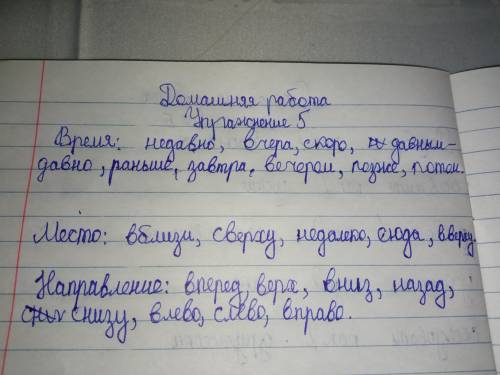 Домашняя работа
Упражнение 5
Время: недавно, вчера, скоро, давным-
давно, раньше, завтра, вечером, позже, потом.
Место: вблизи, сверху, недалеко, сюда, вверху.
Направление: вперед, верх, вниз, назад,
снизу, влево, слево, вправо.